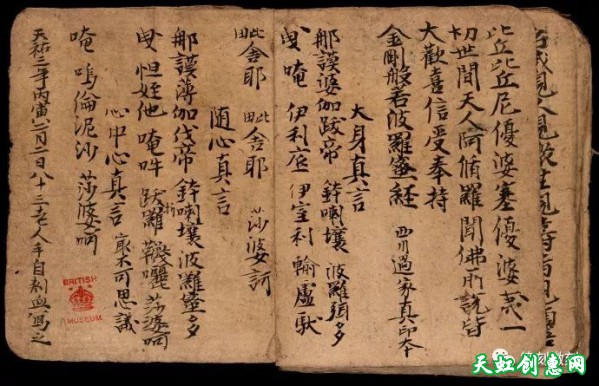 比丘比丘尼優婆塞優婆夷一
切世間天人阿脩羅聞佛所說皆
大歡喜信受奉持
金剛般若波羅蜜經 西川過家真印本
大身真言
那謨婆伽跋帝 鉢喇壤 波羅頞多
曳唵 伊利底 伊室利 輸盧馱
毗舍耶 毗舍耶 莎婆訶
隨心真言
那謨薄伽伐帝 鉢喇壤波羅蜜多
曳怛姪他 唵吽 跋羅 韈囇莎婆訶
心中心真言 最不可思議
唵嗚倫泥沙 莎婆訶
天祐三年丙寅二月二日八十三老人手自刺血寫之
BRITISH
MUSEUM
天虹创意网